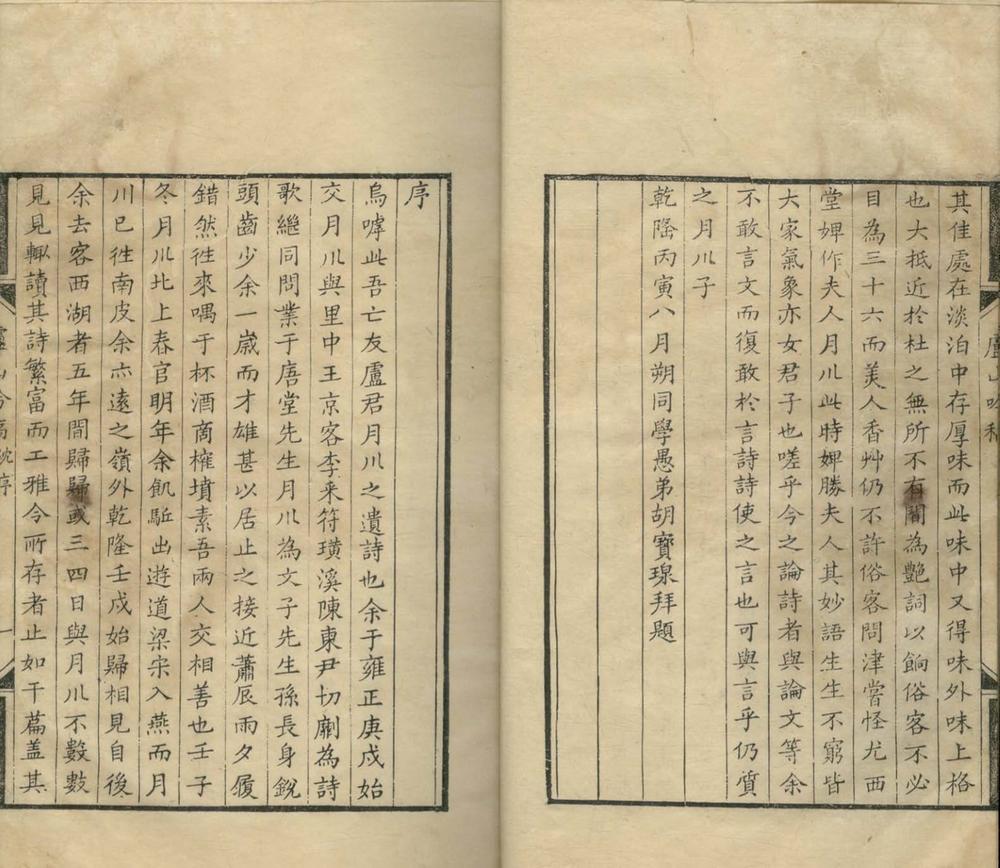 其佳處在淡泊中存厚味而此味中又得味外味上格
也大抵近於杜之無所不有間為艷詞以餉俗客不必
目為三十六而美人香艸仍不許俗客問津嘗怪尤西
堂婢作夫人月川此時婢勝夫人其妙語生生不窮皆
大家氣象亦女君子也嗟乎今之論詩者與論文等余
不敢言文而復敢於言詩詩使之言也可與言乎仍質
之月川子
乾隆丙寅八月朔同學愚弟胡寶瑔拜題
序
烏嘑此吾亡友盧君月川之遺詩也余于雍正庚戍始
交月川與里中王京客李采符璜溪陳東尹切劘為詩
歌繼同問業于唐堂先生月川為文子先生孫長身銳
頭齒少余一歲而才雄甚以居止之接近蕭辰雨夕履
錯然徃來喁于杯酒商榷墳素吾兩人交相善也壬子
冬月川北上春官明年余飢駈出遊道梁宋入燕而月
川已徃南皮余亦遠之嶺外乾隆壬戍始歸相見自後
余去客西湖者五年間歸歸或三四日與月川不數數
見見輙讀其詩繁富而工雅今所存者止如干篇盖其